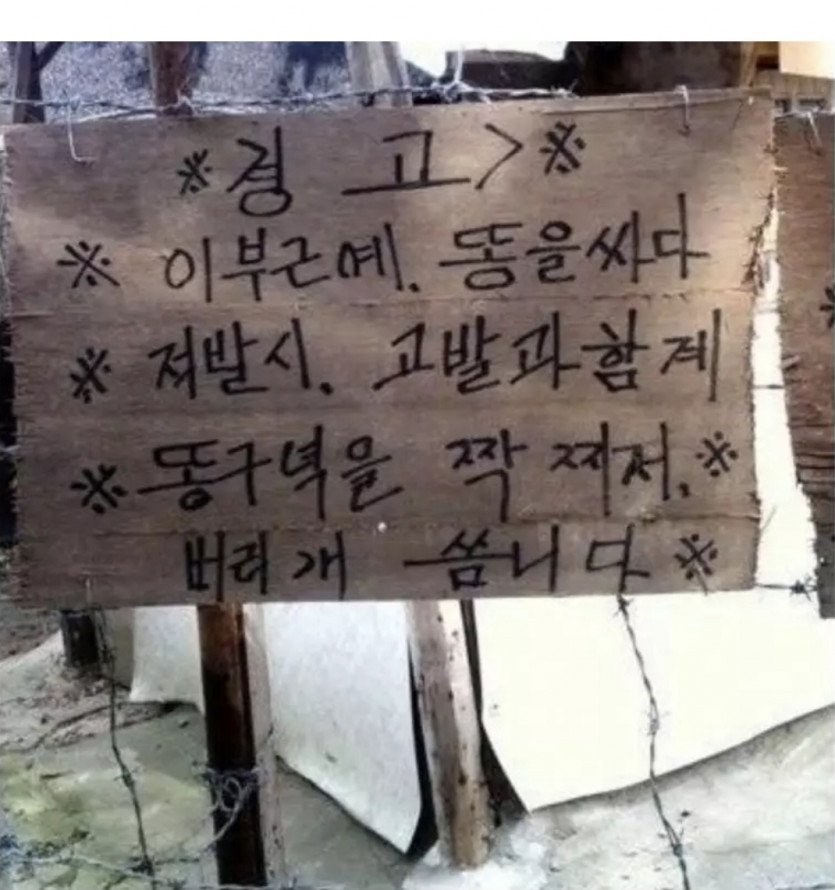 ※경 고>※
※ 이부근에. 똥을싸다
※ 적발시. 고발과함께
※똥구녁을 짝 찌저.※
버리개 씀니다※